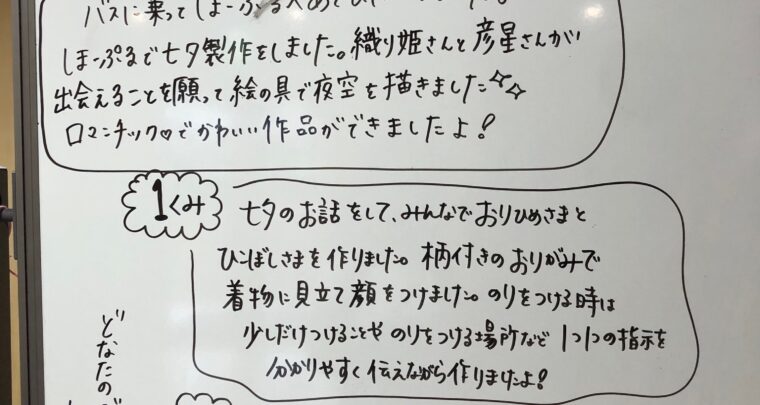 バスに乗ってしまーぷるへ
しまーぷるで七夕製作をしました。織り姫さんと彦星さんが
出会えることを願って絵の具で夜空を描きました
ロマンチック♡でかわいい作品ができましたよ!
1くみ
七夕のお話をして、みんなでおりひめさまと
ひこぼしさまを作りました。柄付きのおりがみで
着物に見立て顔をつけました。のりをつける時は
少しだけつけることや のりをつける場所など 1つ1つの指示を
分かりやすく伝えながら作りましたよ!
どなたの